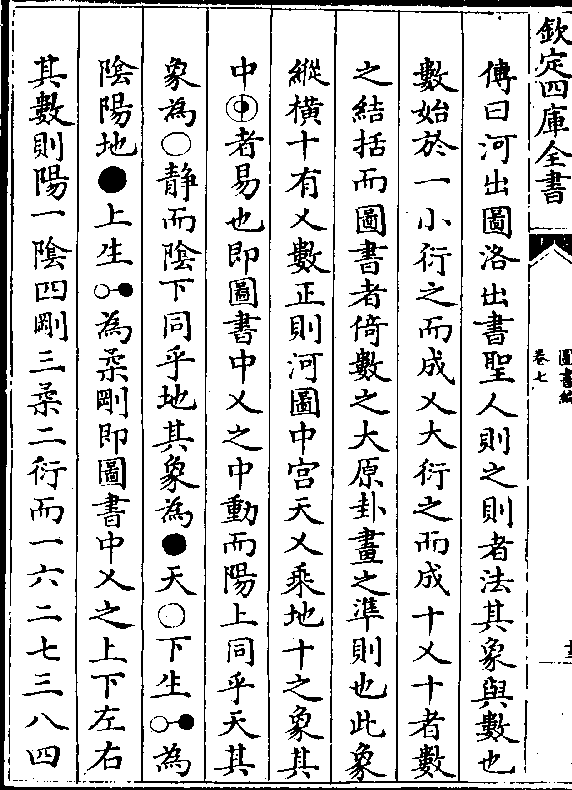 欽定四庫全書
圖書編
卷七
傳曰河出圖洛出書聖人則之則者法其象與數也
數始於一小衍之而成㐅大衍之而成十㐅十者數
之結括而圖書者倚數之大原卦畫之準則也此象
縱橫十有㐅數正則河圖中宫天㐅乘地十之象其
中者易也即圖書中㐅之中動而陽上同乎天其
象為○靜而陰下同乎地其象為●天○下生○●為
陰陽地●上生○●為柔剛即圖書中㐅之上下左右
其數則陽一陰四剛三柔二衍而一六二七三八四